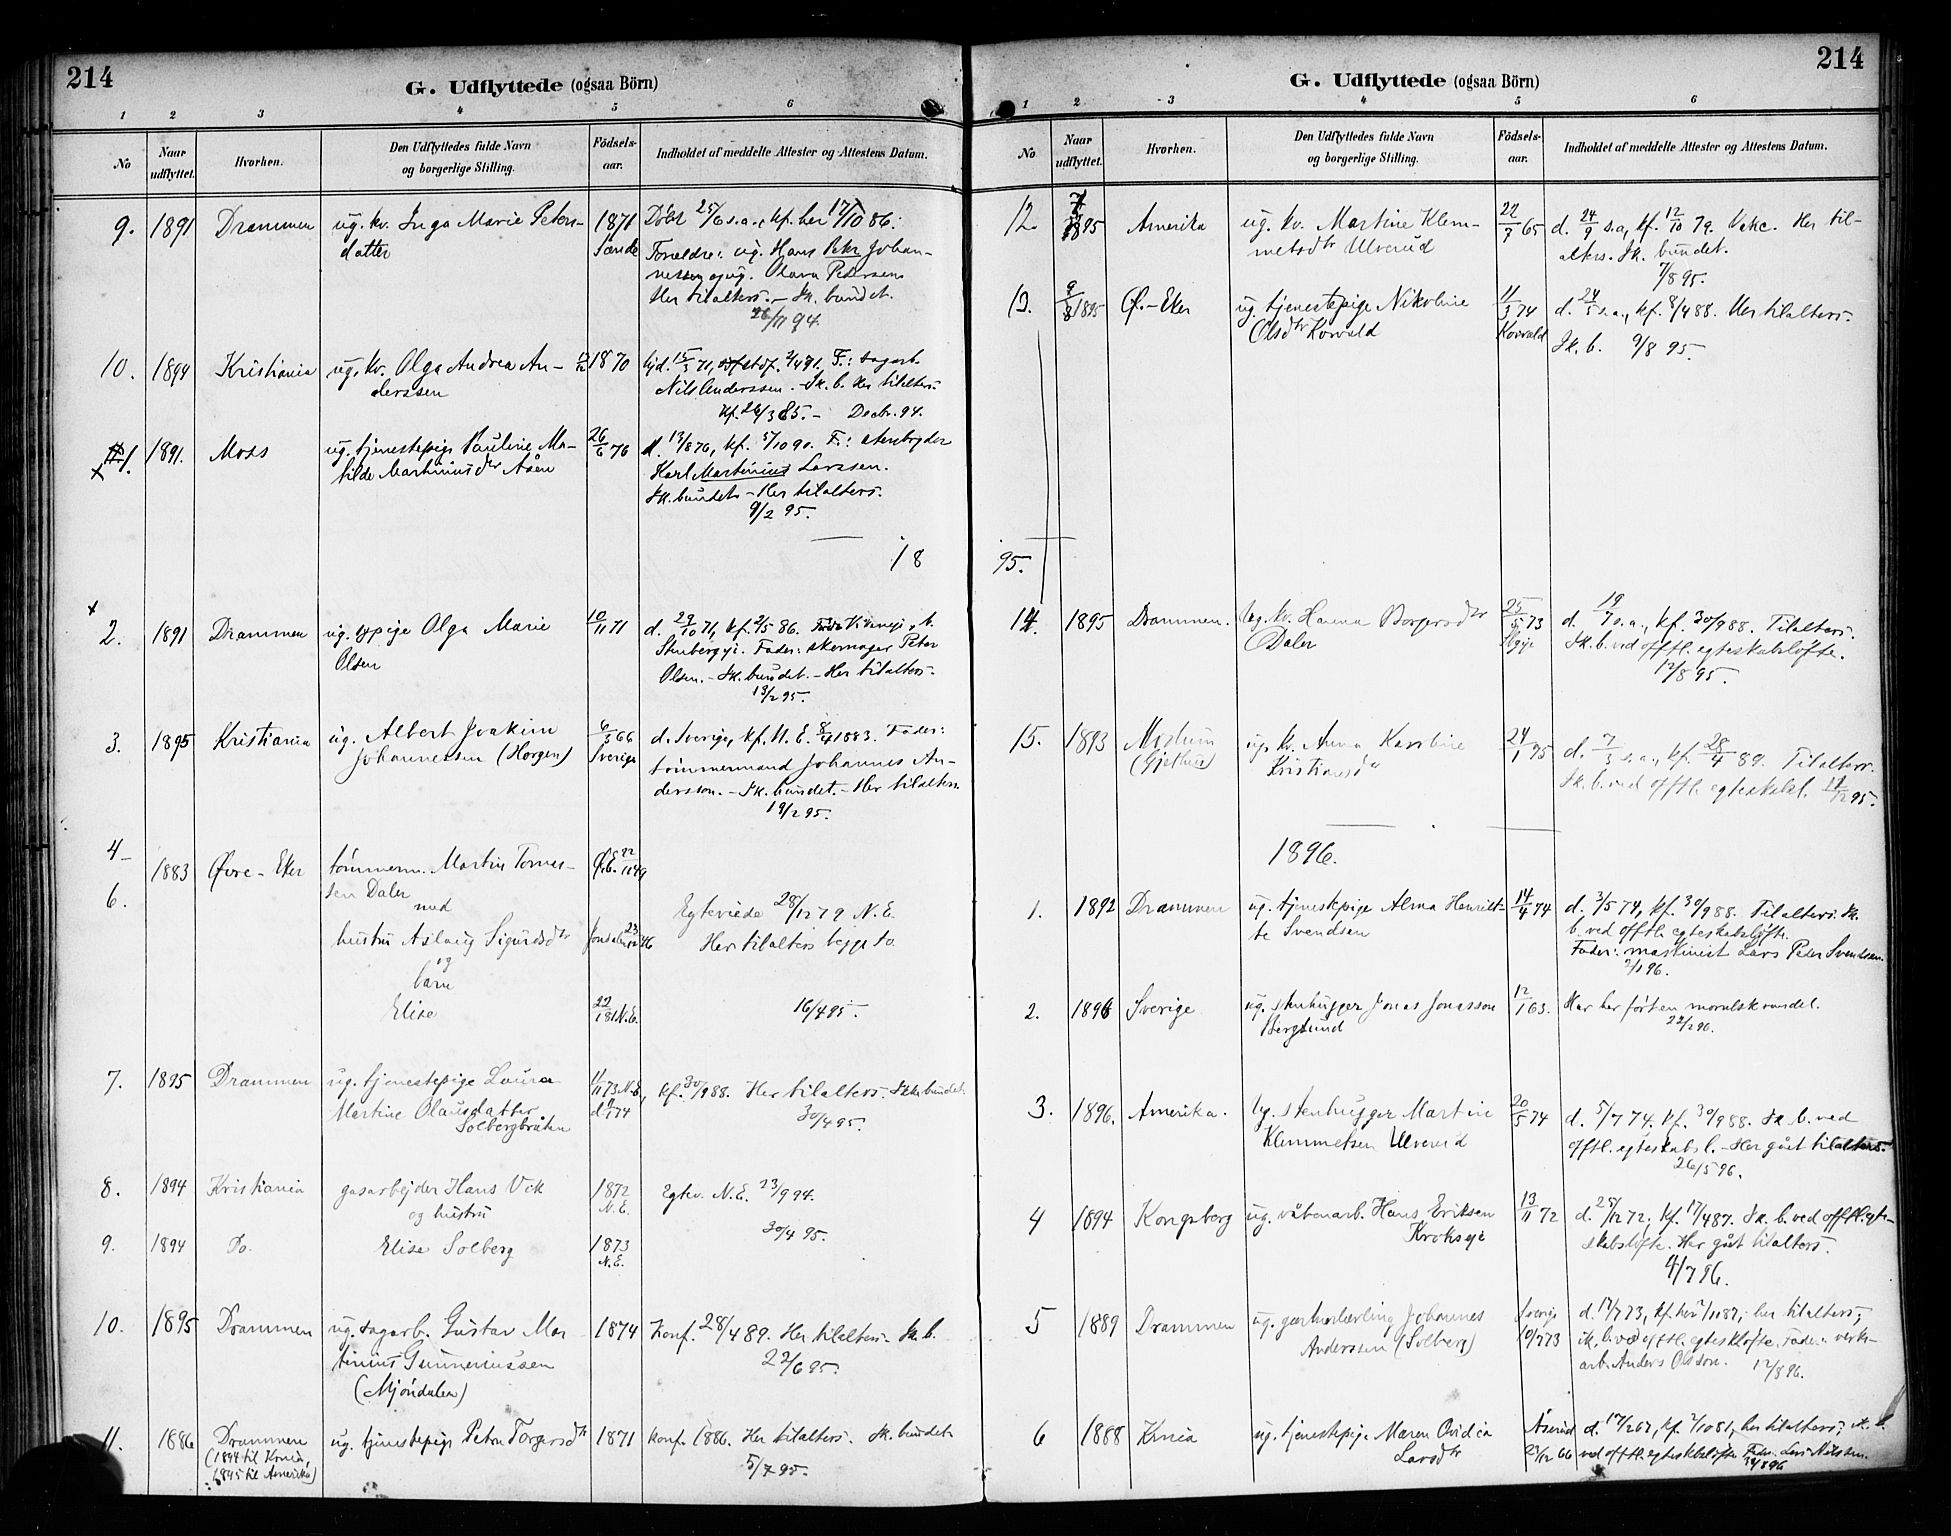 214
G. Udflyttede (ogsaa Börn)
1 2 3 4 5 6
No
Naar udflyttet.
Hvorhen.
Den Udflyttedes fulde Navn
og borgerlige Stilling.
Födsels-
aar.
Indholdet af meddelte Attester og Attestens Datum.
9. 1891 Drammen ug. kv. Inga Marie Peters- 1871 Döbt 25/6 s.a., kf. her 17/10 86.
datter Sande Forældre: ug. Hans Peter Johan-
nessen og ug. Olava Petersen
Her tilalters. - Sk. bundet.
26/11 94.
10. 1894 Kristiania ug. kv. Olga Andrea An- 1870 hjd. 15/3 71, stadf. 2/4 71, F.: sagarb.
derssen Nils Anderssen. - Sk. b. Her tilalters.
kf. 26/3 85. - Decbr. 94.
1. 1891. Moss ug. tjenestepige Pauline Ma- 26/6 76 d. 13/8 76, kf. 5/10 90. F.: stenbryder
tilde Martinusdtr Åsen Karl Martinius Larssen.
Sk. bundet - Her tilalters.
9/2 95.
18
2. 1891 Drammen ug. pige Olga Marie 10/11 71 d. 29/10 71, kf. 2/5 86.
Olsen Stenbergej. Fader: skomager Peter
Olsen. - Sk. bundet. - Her tilalters.
13/2 95.
3. 1895 Kristiania ug. Albert Joakim 6/3 66 d. Sverige, kf. N. E. 8/4 1883. Fader:
Johannessen (Horgen) Sverige tömmermand Johannes An-
dersson. - Sk. bundet. - Her tilalters.
19/2 95.
4 -
1883 Övre-Eker tömmerm. Martin Tornes- Ö.E. 22/11 49
6. sen Daler
med Egteviede 28/12 79 N.E.
hustru Aslaug Sigurdsdtr Jondalen 23/12 46 Her tilalters begge to.
og
barn
Elise 22/1 81 N.E. 16/4 95.
7. 1895 Drammen ug. tjenestepige Laura 11/11 73 N.E. kf. 30/9 88. Her tilalters. Ikke bundet.
Martine Olausdatter 30/4 95.
Solbergbråten
8. 1894 Kristiania gasarbejder Hans Vik 1872 Egtev. N.E. 23/9 94.
og hustru N.E.
30/4 95.
9. 1894 Do. Elise Solberg 1873
N.E.
10. 1895 Drammen ug. sagarb. Gustav Mar- 1874 Konf. 28/4 89. Her tilalters. Sk. b.
tinius Gunneriussen 22/6 95.
(Mjöndalen)
11. 1886 Drammen ug. tjenestepige Petra Torgersdtr 1871 Konf. 1886. Her tilalters. Sk. bundet
(1894 til Kr.nia, 5/7 95.
1895 til Amerika)
214
G. Udflyttede (ogsaa Börn)
1 2 3 4 5 6
No
Naar
udflyttet.
Hvorhen.
Den Udflyttedes fulde Navn
og borgerlige Stilling.
Födsels-
aar.
Indholdet af meddelte Attester og Attestens Datum.
12. 1895 Amerika ug. kv. Martine Klem- 22/7 65 d. 24/9 s.a., kf. 12/10 79. Vakc. Her til-
metsdtr Ulverud alters. Sk. bundet.
7/8 95.
13. 9/8 1895 Ö.-Eker ug. tjenestepige Nikoline 11/3 74 d. 24/5 s.a., kf. 8/4 88. Her tilalters.
Olsdtr Korvald Korvald Sk. b. 9/8 95.
95.
14. 1895 Drammen. ug. kv. Hanna Borgersdtr 25/5 73 d. 19/7 s.a., kf. 30/9 88. Tilalters.
Daler Sk. b. ved offtl. egteskabslöfte.
12/8 95.
15. 1893 Modum ug. k. Anna Karoline 24/1 75 d. 7/3 s.a., kf. 28/4 89. Tilalters.
(Gjethus) Kristiansdtr Sk. b. ved offtl. egteskabsl. 11/12 95.
1896.
1. 1892 Drammen ug. tjenestepige Alma Henriet- 14/4 74 d. 3/5 74, kf. 30/9 88. Tilalters. Sk.
te Svendsen b. ved offtl. egteskabslöfte.
Fader: maskinist Lars Peter Svendsen.
2/1 96.
2. 1896 Sverige ug. stenhugger Jonas Jonasson 12/1 63. Har her fört en moralsk vandel.
Berglund 22/2 96.
3. 1896. Amerika. ug. stenhugger Martin 20/5 74 d. 5/7 74, kf. 30/9 88. Sk. b. ved
Klemmetsen Ulverud offtl. egteskabsl. - Her gået tilalters.
26/5 96.
4 1894 Kongsberg ug. våbenarb. Hans Eriksen 13/11 72 d. 25/12 72, kf. 17/4 87. Sk. b. ved offtl. egte-
Kroksye skabslöfte. Her gået tilalters.
4/7 96.
5 1889 Drammen ug. Johannes Sverige d. 17/7 73, kf. her 2/10 87, her tilalters,
Anderssen (Solberg) 10/7 73 sk. b. ved offtl. egteskbslöfte. Fader: verks-
arb. Anders Olsson. 12/8 96.
6 1888 Kr.nia ug. tjenestepige Maren Ovidia Åserud d. 17/2 67, kf. 2/10 81, her tilalters, sk. b.
Larsdtr 23/12 66 ved offtl. egteskabslöfte. Fader: Lars Nilssen.